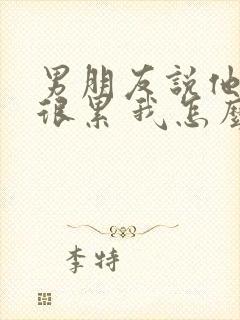 男朋友說他
很累我怎麼
李特